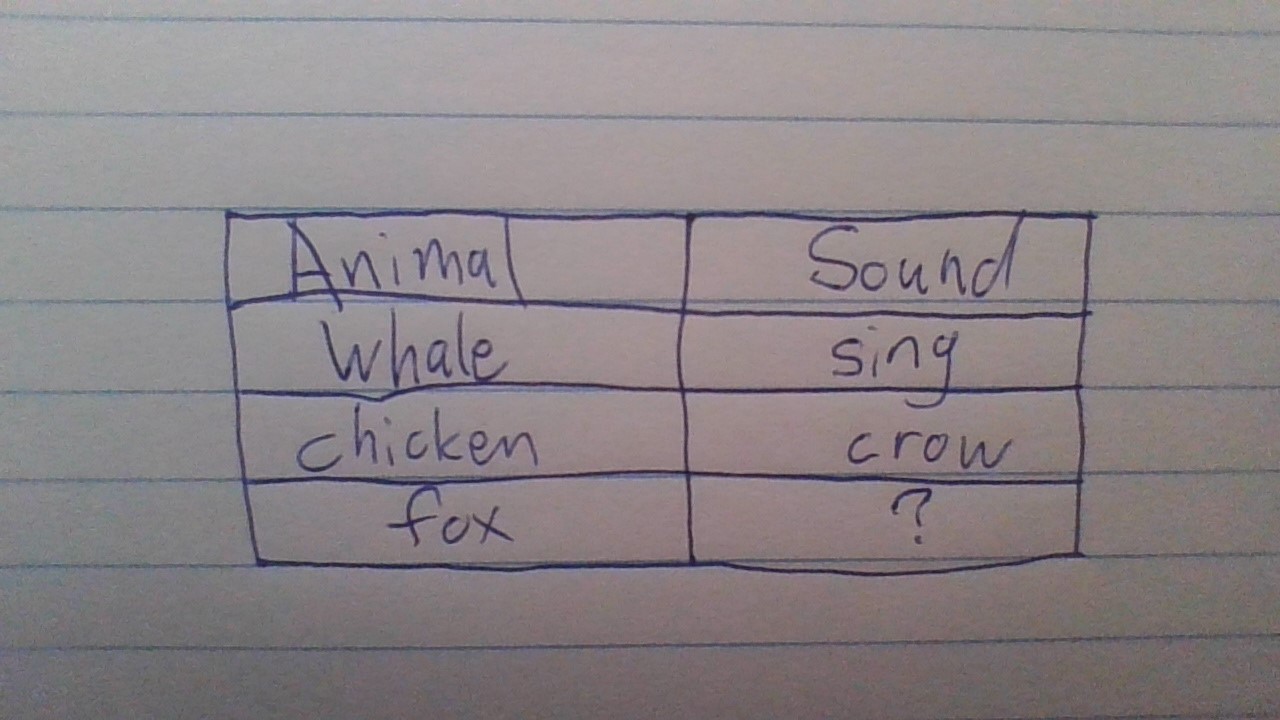 Animal Sound
Whale sing
chicken crow
fox ?